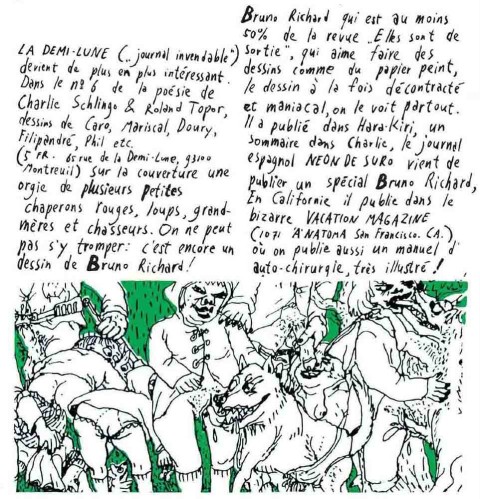 LA DEMI-LUNE („ journal invendable")
devient de plus en plus intéressant.
Dans le nº 6 de la poésie de
Charlie Schlingo & Roland Topor,
dessins de Caro, Mariscal, Doury,
Filipandré, Phil etc.
(5 FR. 65 rue de la Demi-Lune, 93100
Montreuil) sur la couverture une
orgie de plusieurs petites
chaperons rouges, loups, grand-
mères et chasseurs. On ne peut
pas s'y tromper: c'est encore un
dessin de Bruno Richard!
Bruno Richard qui est au moins
50% de la revue „Elles sont de
sortie", qui aime faire des
dessins comme du papier peint,
le dessin à la fois décontracté
et maniacal, on le voit partout.
Il a publié dans Hara-Kiri, un
sommaire dans Charlie, le journal
espagnol NEON DE SURO vient de
publier un spécial Bruno Richard,
En Californie il publie dans le
bizarre VACATION MAGAZINE
(1071 A NATOMA San Francisco. CA.)
où on publie aussi un manuel d'
auto-chirurgie, très illustré!